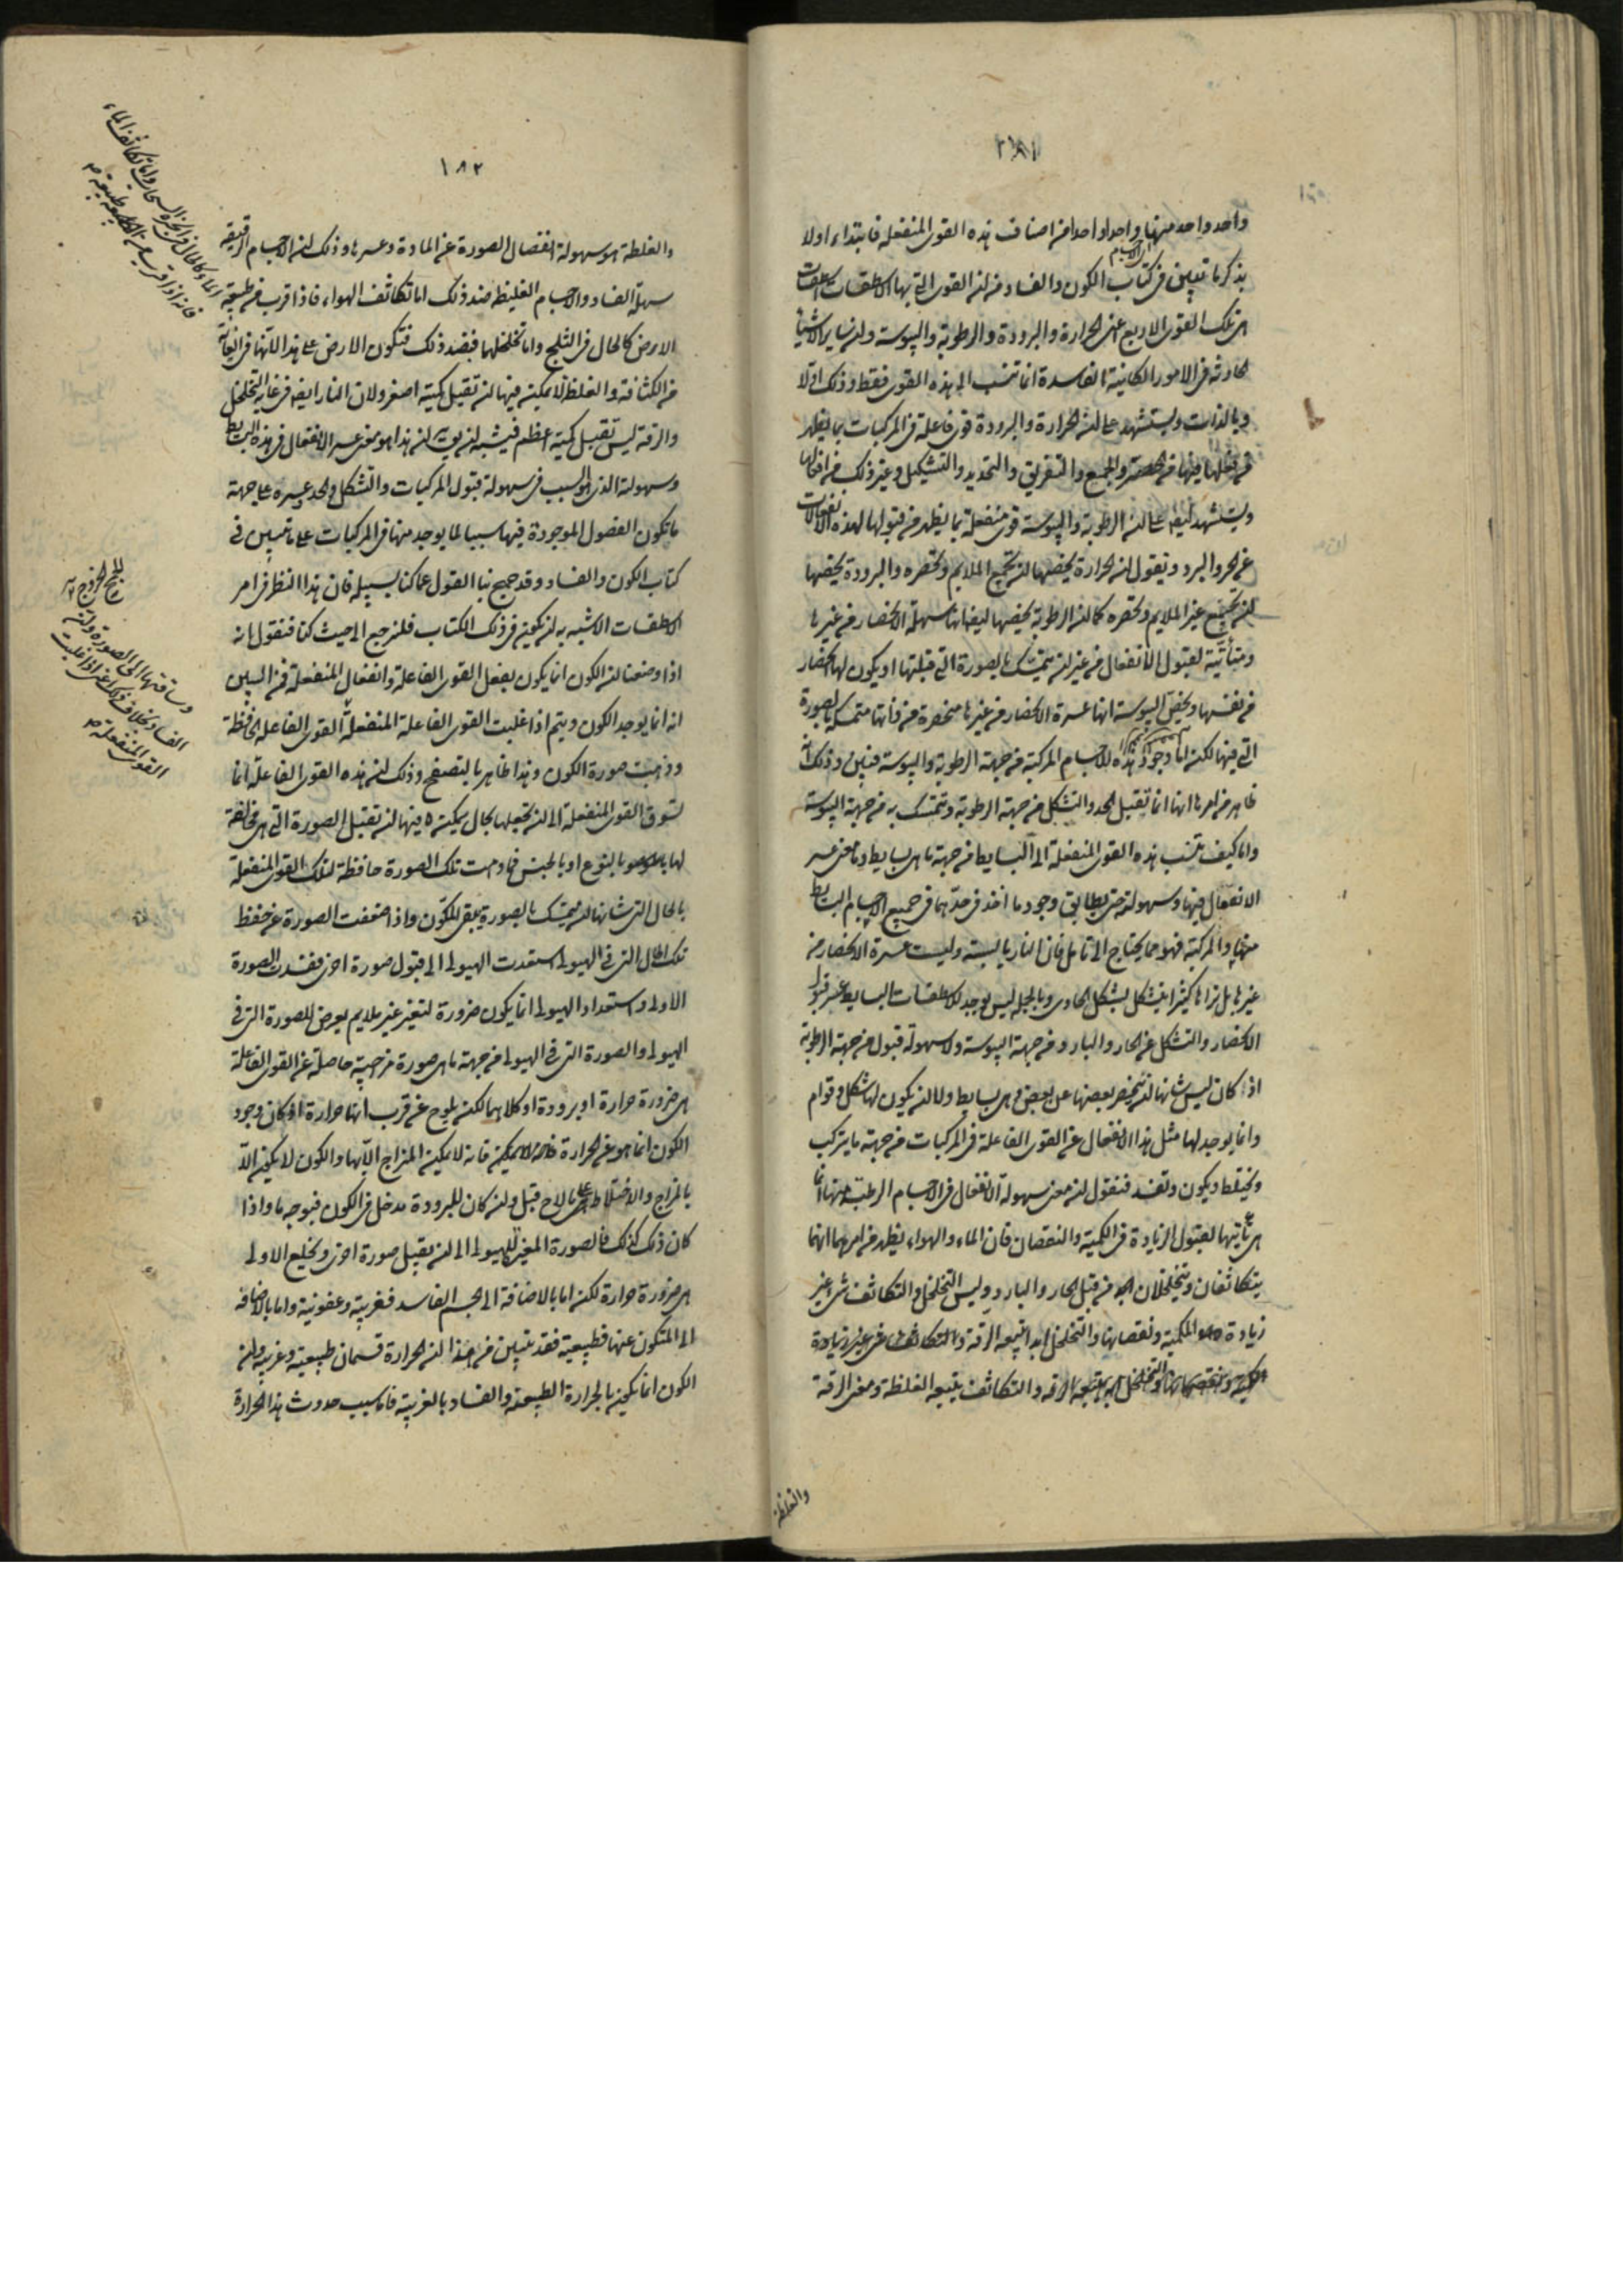 ١٨١
واحد واحد منها واحدا واحدا من اصناف هذه القوى المنفعلة فابتداء اولا
يذكر ما تبين في كتاب الكون والفساد من ان القوى التي بها الاسطقسات اسطقسات
هي تلك القوى الاربع اعنى الحرارة والبرودة والرطوبة واليبوسة وان ساير الاشياء
الحادثة في الامور الكائنة الفاسدة انما تنسب الى هذه القوى فقط وذلك اولا
وبالذات ويستشهد على ان الحرارة والبرودة قوى فاعلة في المركبات بما يظهر
من فعلها فيها من الحصر والجمع والتفريق والتحديد والتشكيل وغير ذلك من افعالها
ويستشهد ايضا على ان الرطوبة واليبوسة قوى منفعلة بما يظهر من قبولها لهذه الانفعالات
عن الحر والبرد ونقول ان الحرارة يخصها ان تجمع الملايم وتحصره والبرودة يخصها
ان تجمع غير الملايم وتحصره كما ان الرطوبة يخصها ايضا انها سهلة الانحصار من غيرها
ومتأتية لقبول الانفعال من غير ان تتمسك بالصورة التي قبلتها او يكون لها انحصار
من نفسها ويخص اليبوسة انها عسرة الانحصار من غيرها منحصرة من ذاتها متمسكة بالصورة
التي فيها لكن اما وجود هذه الاجسام المركبة من جهة الرطوبة واليبوسة فبين وذلك انه
ظاهر من امرها انها انما تقبل الحد والتشكل من جهة الرطوبة وتتمسك به من جهة اليبوسة
واما كيف تنسب هذه القوى المنفعلة الى البسايط من جهة ما هي بسايط وما معنى عسر
الانفعال فيها وسهولته حتى يطابق وجود ما اخذ في حدهما في جميع الاجسام البسايط
منها والمركبة فهو مما يحتاج الى تامل فان النار يابسة وليست عسرة الانحصار من
غيرها بل نراها كثيرا تتشكل بشكل الحاوى وبالجملة ليس يوجد للاسطقسات البسايط عسر قبول
الانحصار والتشكل عن الحار والبارد من جهة اليبوسة ولا سهولة قبول من جهة الرطوبة
اذ كان ليس شانها ان ينحصر بعضها عن بعض وهي بسايط ولا ان يكون لها شكل وقوام
وانما يوجد لها مثل هذا الانفعال عن القوى الفاعلة في المركبات من جهة ما يتركب
ويختلط ويكون وتفسد فنقول ان معنى سهولة الانفعال في الاجسام الرطبة منها انما
هي تأتيها لقبول الزيادة في الكمية والنقصان فان الماء والهواء يظهر من امرهما انهما
يتكاثفان ويتخلخلان من قبل الحار والبارد وليس التخلخل والتكاثف شيء غير
زيادة الكمية ونقصانها والتخلخل ابدا يتبعه الرقة والتكاثف
يتبعه الغلظة ومعنى الرقة
والغلظة
١٨٢
والغلظة هو سهولة انفصال الصورة عن المادة وعسرها وذلك ان الاجسام الرقيقة
سهلة الفساد والاجسام الغليظة ضد ذلك اما تكاثف الهواء فاذا قرب من طبيعة
الارض كالحال في الثلج واما تخلخلها فبضد ذلك فتكون الارض على هذا لانها في الغاية
من الكثافة والغلظ لا يمكن فيها ان تقبل كمية اصغر ولان النار ايضا في غاية التخلخل
والرقة ليس تقبل كمية اعظم فيشبه ان يوء ان هذا هو معنى عسر الانفعال في هذه البسايط
وسهولته الذي هو السبب في سهولة قبول المركبات والتشكل والحد وعسره على جهة
ما تكون الفصول الموجودة فيها سببا لما يوجد منها في المركبات على ما تبين في
كتاب الكون والفساد وقد خرج بنا القول عما كنا بسبيله فان هذا النظر في امر
الاسطقسات الاشبه به ان يكون في ذلك الكتاب فلنرجع الى حيث كنا فنقول انه
اذا وضعنا ان الكون انما يكون بفعل القوى الفاعلة وانفعال المنفعلة فمن البين
انه انما يوجد الكون ويتم اذا غلبت القوى الفاعلة المنفعلة القوى الفاعلة الحافظة
وذهبت صورة الكون وهذا ظاهر بالتصفح وذلك ان هذه القوى الفاعلة انما
تسوق القوى المنفعلة الى ان تجعلها بحال يمكنه فيها ان تقبل الصورة التي هي مخالفة
لها بالنوع او بالجنس فما دامت تلك الصورة حافظة لتلك القوى المنفعلة
بالحال التي شانها ان تتمسك بالصورة يبقى المتكون واذا ضعفت الصورة عن حفظ
تلك الحال التي في الهيولى استعدت الهيولى الى قبول صورة اخرى ففسدت الصورة
الاولى واستعداد الهيولى انما يكون ضرورة لتغير غير ملايم يعرض للصورة التي في
الهيولى والصورة التي في الهيولى من جهة ما هي صورة مزاجية حاصلة عن القوى الفاعلة
هي ضرورة حرارة او برودة او كلاهما لكن يلوح عن قرب انها حرارة اذ كان وجود
الكون انما هو عن الحرارة فانه لا يمكن المزاج الا بها والكون لا يمكن الا
بالمزاج والاختلاط على ما لاح قبل وان كان للبرودة مدخل في الكون فبوجه ما واذا
كان ذلك كذلك فالصورة المغيرة للهيولى الى ان تقبل صورة اخرى وتخلع الاولى
هي ضرورة حرارة لكن اما بالاضافة الى الجسم الفاسد فغريبة وعفونية واما بالاضافة
الى المتكون عنها فطبيعية فقد تبين من هذا ان الحرارة قسمان طبيعية وغريبة وان
الكون انما يكون بالحرارة الطبيعية والفساد بالغريبة فاما سبب حدوث هذه الحرارة